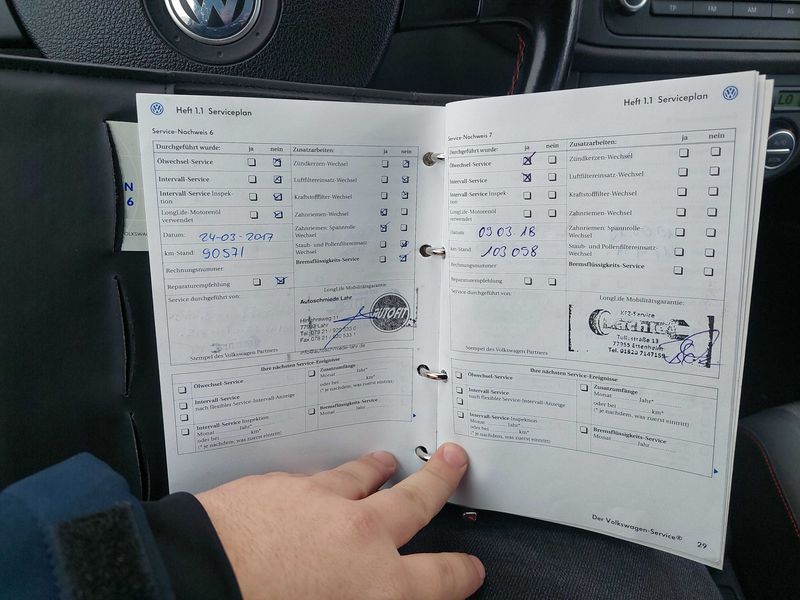 TP FM AM AS
LO
AUTO
N
6
VOLKSWAGEN
Heft 1.1 Serviceplan
Service-Nachweis 6
Durchgeführt wurde: ja nein Zusatzarbeiten: ja nein
Ölwechsel-Service Zündkerzen-Wechsel
Intervall-Service Luftfiltereinsatz-Wechsel
Intervall-Service Inspek-
tion Kraftstofffilter-Wechsel
LongLife-Motorenöl
verwendet Zahnriemen-Wechsel
Datum: 24-03-2017 Zahnriemen: Spannrolle-
Wechsel
km-Stand: 90571 Staub- und Pollenfiltereinsatz-
Wechsel
Rechnungsnummer: Bremsflüssigkeits-Service
Reparaturempfehlung
LongLife Mobilitätsgarantie:
Service durchgeführt von:
Autoschmiede Lahr
11
77933 Lahr
Tel. 078 21 /
Fax 078 21 /
AUTOFIT
Stempel des Volkswagen Partners
Ihre nächsten Service-Ereignisse
Ölwechsel-Service Zusatzumfänge
Monat Jahr*
oder bei km*
(* je nachdem, was zuerst eintritt)
Intervall-Service
nach flexibler Service-Intervall-Anzeige
Intervall-Service Inspektion
Monat Jahr*
oder bei km*
(* je nachdem, was zuerst eintritt)
Bremsflüssigkeits-Service
Monat Jahr
Heft 1.1 Serviceplan
Service-Nachweis 7
Durchgeführt wurde: ja nein Zusatzarbeiten: ja nein
Ölwechsel-Service Zündkerzen-Wechsel
Intervall-Service Luftfiltereinsatz-Wechsel
Intervall-Service Inspek-
tion Kraftstofffilter-Wechsel
LongLife-Motorenöl
verwendet Zahnriemen-Wechsel
Datum: 09.03.18 Zahnriemen: Spannrolle-
Wechsel
km-Stand: 103 098 Staub- und Pollenfiltereinsatz-
Wechsel
Rechnungsnummer: Bremsflüssigkeits-Service
Reparaturempfehlung
LongLife Mobilitätsgarantie:
Service durchgeführt von:
KFZ-Service
77955 Ettenheim
Stempel des Volkswagen Partners
Ihre nächsten Service-Ereignisse
Ölwechsel-Service Zusatzumfänge
Monat Jahr*
oder bei km*
(* je nachdem, was zuerst eintritt)
Intervall-Service
nach flexibler Service-Intervall-Anzeige
Intervall-Service Inspektion
Monat Jahr*
oder bei km*
(* je nachdem, was zuerst eintritt)
Bremsflüssigkeits-Service
Monat Jahr
Der Volkswagen-Service®
29